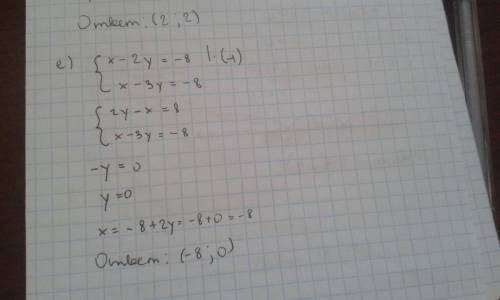 Ответ: (2 ; 2)
е) { x - 2y = -8 | · (-1)
x - 3y = -8
{ 2y - x = 8
x - 3y = -8
-y = 0
y = 0
x = -8 + 2y = -8 + 0 = -8
Ответ: (-8 ; 0)